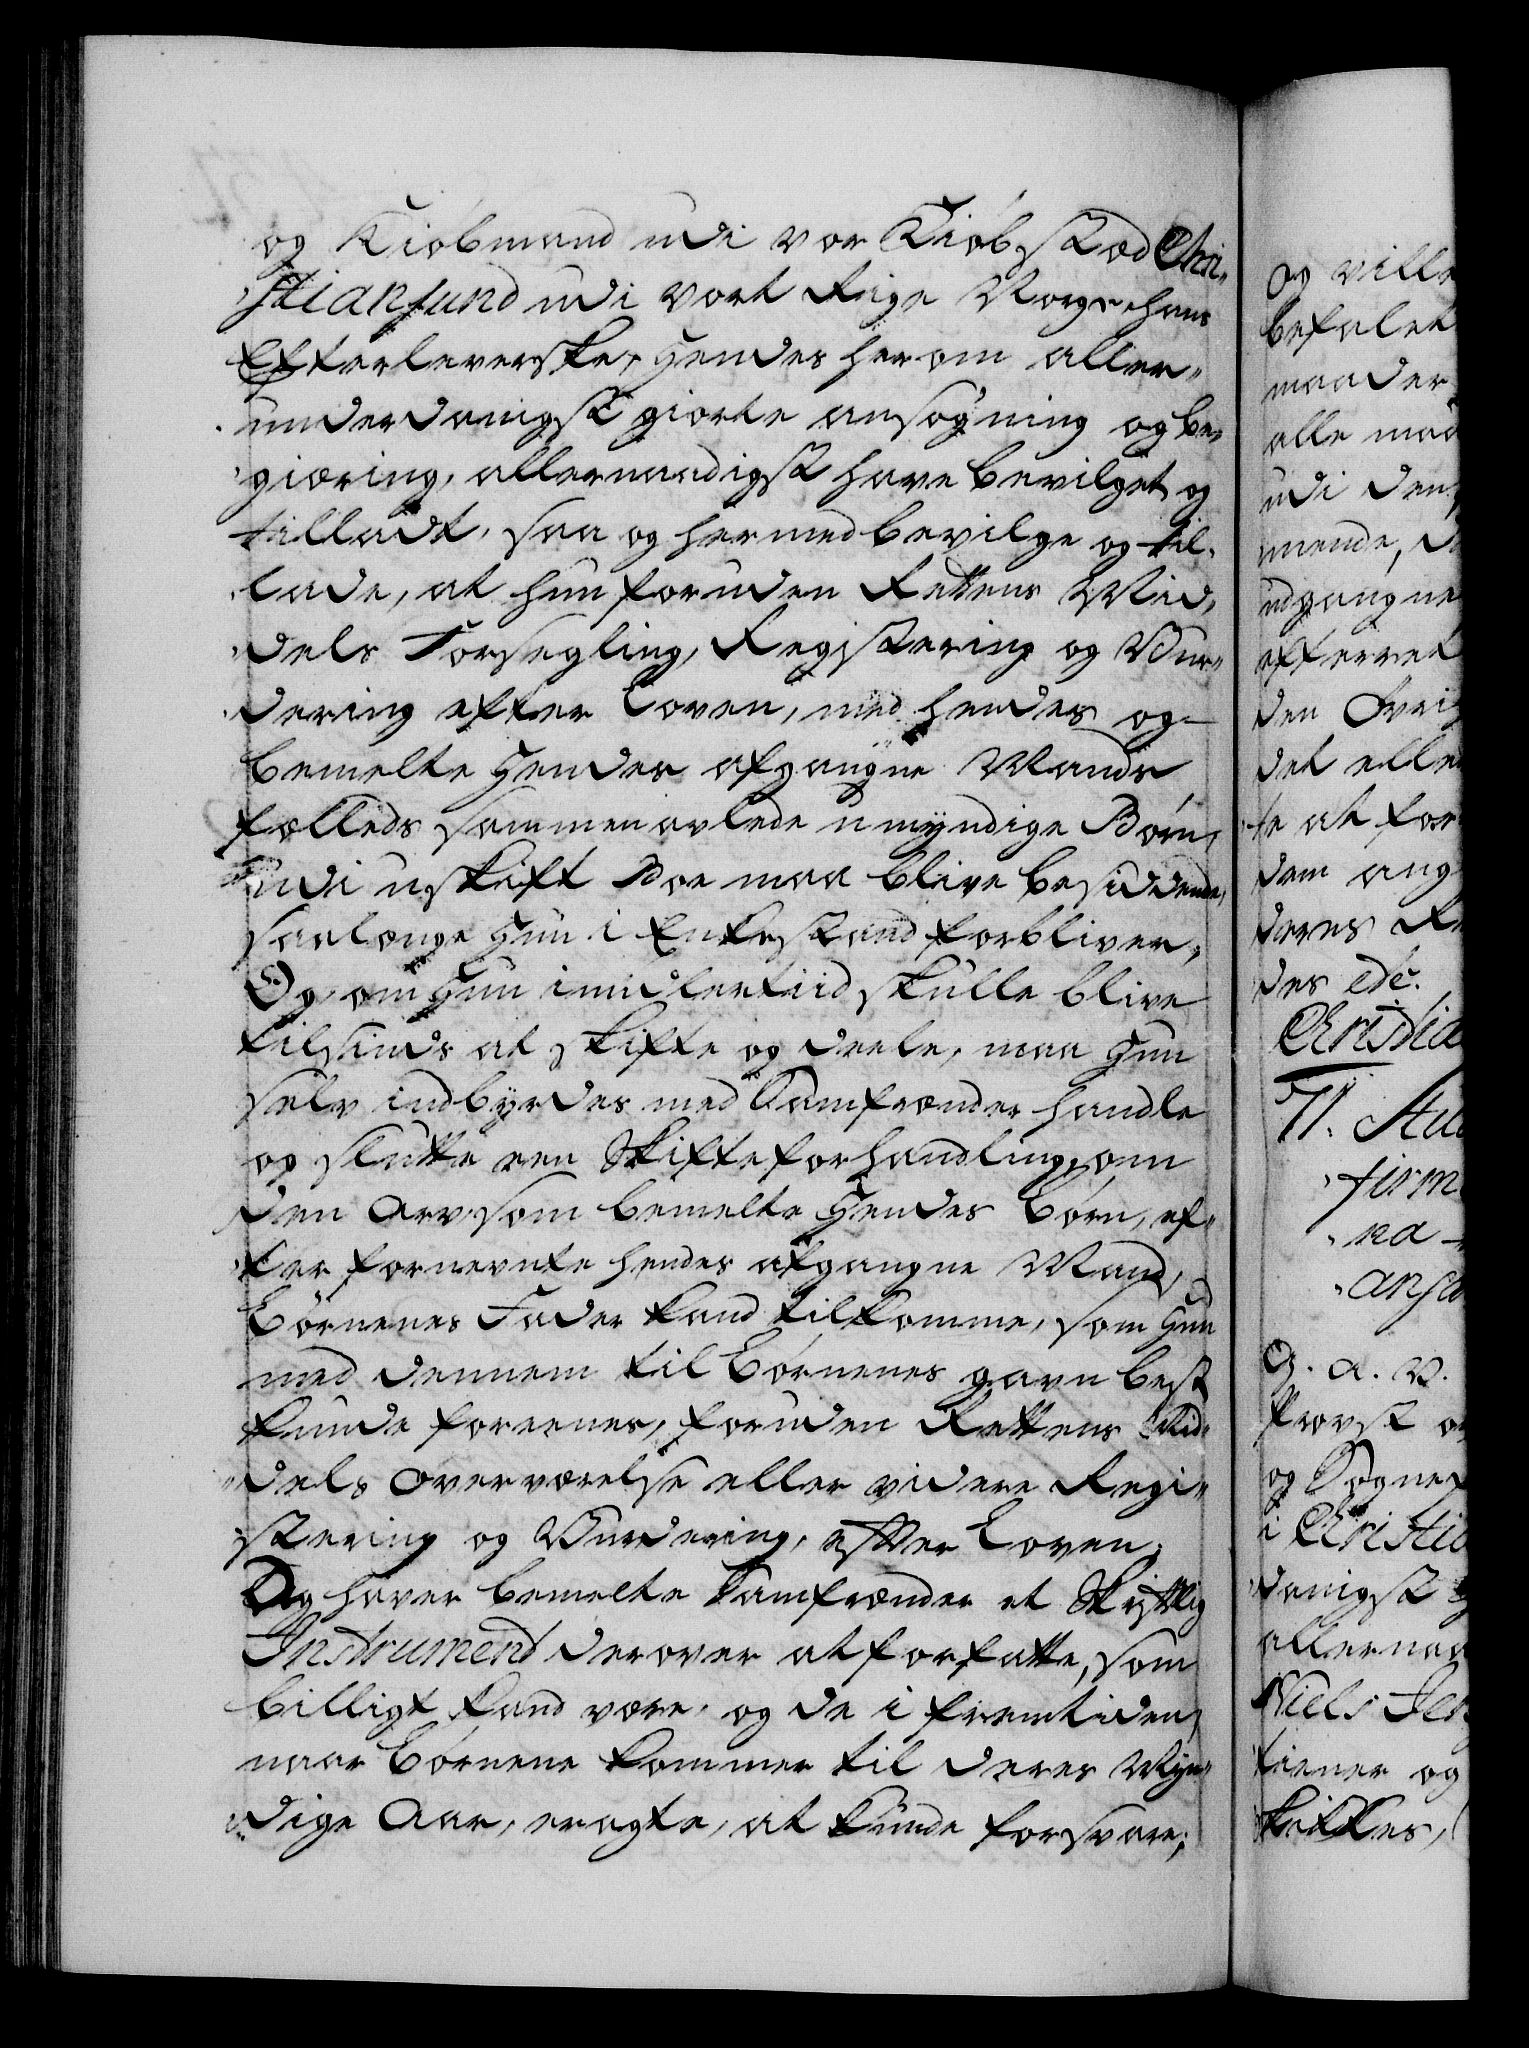 og Kiøbmand udi vor Kiøbsted Chri-
stiansund udi vort Rige Norge hans
Efterleverske, Hendes herom aller-
underdanigst giorte ansøgning og be-
giæring, allernaadigst have bevilget og
tilladt, saa og hermed bevilge og til-
lade, at hun foruden Rettens Mid-
dels Forsegling, Registering og Vur-
dering efter Loven, med hendes og
bemelte Hendes afgangne Mands
fælleds sammenavlede umyndige Børn,
udi uskift Boe maa blive besiddende,
saalænge Hun i Enkestand forbliver,
Og om Hun imidlertiid skulle blive
tilsinds at skifte og deele, maa Hun
selv indbyrdes med Samfrænder handle
og slutte een Skifteforhandling, om
den Arv som bemelte Hendes Børn, ef-
ter fornevnte hendes afgangne Mand,
Børnenes Fader kand tilkomme, som Hun
med dennem til Børnenes gavn best
kunde foreenes, foruden Rettens Mid-
dels overværelse eller videre Regi-
stering og Vurdering, efter Loven;
Og haver bemelte Samfrænder et Skriftlig
Instrument derover at forfatte, som
billigt kand være, og de i fremtiden,
naar Børnene kommer til deres Myn-
dige Aar, eragte, at kunde forsvare;
og ville
befalet
maader
alle maa
udi den
mende,
udgangne
efterret
den Øvrig
det elle
te at for
dem ang
deres Re
des etc.
Christia
71. Stu
firm
na
ansa
G. A. V.
Provst o
og Sognep
i Christia
danigst
allernaa
Niels Jes
tiener og
skikkes,